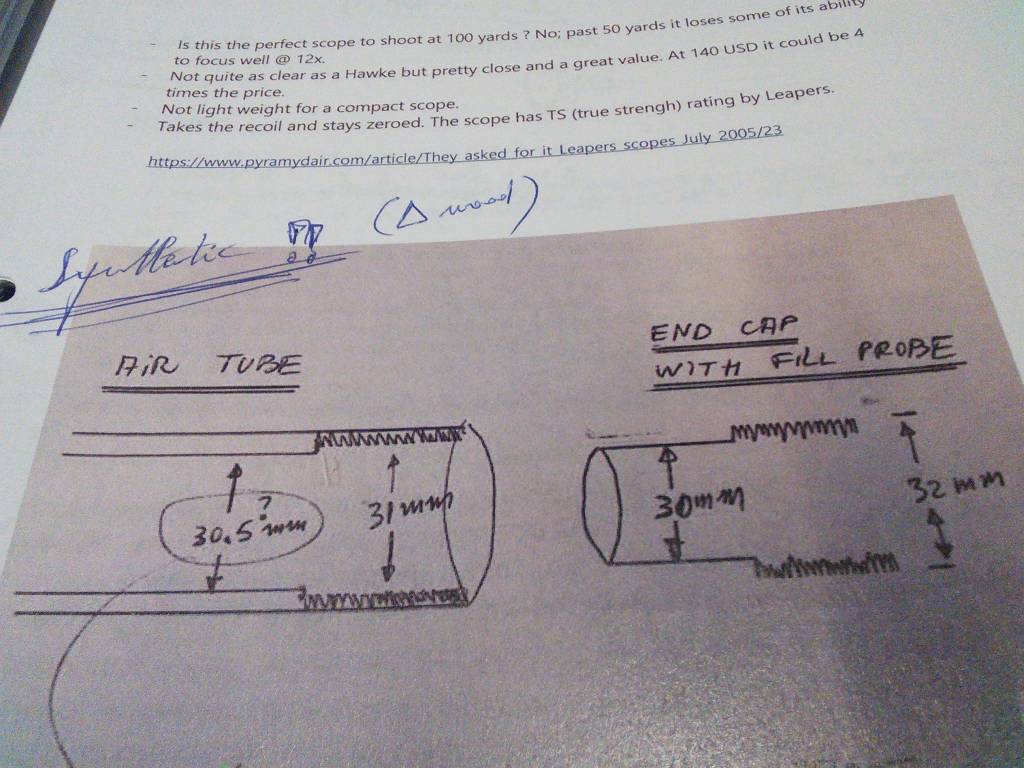 - Is this the perfect scope to shoot at 100 yards ? No; past 50 yards it loses some of its ability
to focus well @ 12x.
- Not quite as clear as a Hawke but pretty close and a great value. At 140 USD it could be 4
times the price.
- Not light weight for a compact scope.
- Takes the recoil and stays zeroed. The scope has TS (true strengh) rating by Leapers.
https://www.pyramydair.com/article/They_asked_for_it_Leapers_scopes_July_2005/23
Synthetic !! (Δ wood)
AIR TUBE
END CAP
WITH FILL PROBE
30.5 ? mm
31 mm
30mm
32 mm